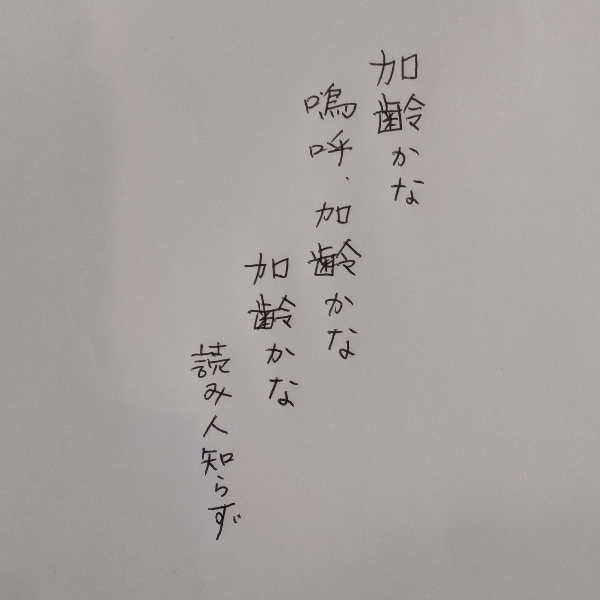 加齢かな
嗚呼、加齢かな
加齢かな
読み人知らず